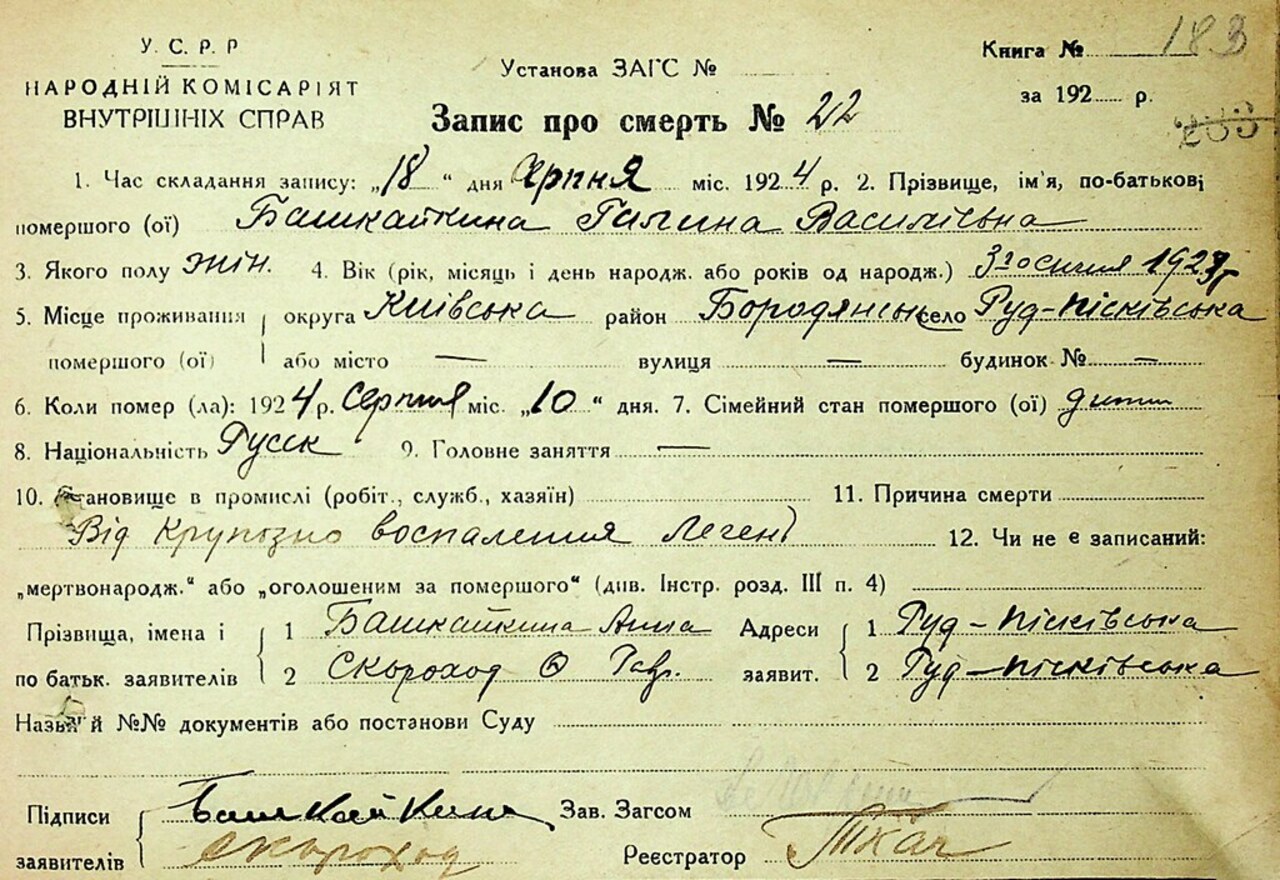 У. С. Р. Р
НАРОДНІЙ КОМІСАРІЯТ
ВНУТРІШНІХ СПРАВ
Установа ЗАГС №
Книга № 183
за 192 р.
Запис про смерть № 22
1. Час складання запису: „18“ дня Серпня міс. 1924 р. 2. Прізвище, ім'я, по-батькові
помершого (ої) Башкайкина Галина Василівна
3. Якого полу жін. 4. Вік (рік, місяць і день народж. або років од народж.) 3го січня 1923 г
5. Місце проживання округа Київська район Бородянськ село Руд-Пісківська
помершого (ої) або місто — вулиця — будинок № —
6. Коли помер (ла): 1924 р. Серпня міс. „10“ дня. 7. Сімейний стан помершого (ої) дитя
8. Національність Русск 9. Головне заняття —
10. Становище в промислі (робіт., служб., хазяїн) 11. Причина смерти
Від Крупозно воспаления Легені 12. Чи не є записаний:
„мертвонародж.“ або „оголошеним за помершого“ (див. Інстр. розд. III п. 4)
Прізвища, імена і 1 Башкайкина Анна Адреси 1 Руд-Пісківська
по батьк. заявителів 2 Скороход Ф заявит. 2 Руд-Пісківська
Назви й №№ документів або постанови Суду
Підписи Башкайкина Зав. Загсом
заявителів Скороход Реєстратор Ткач